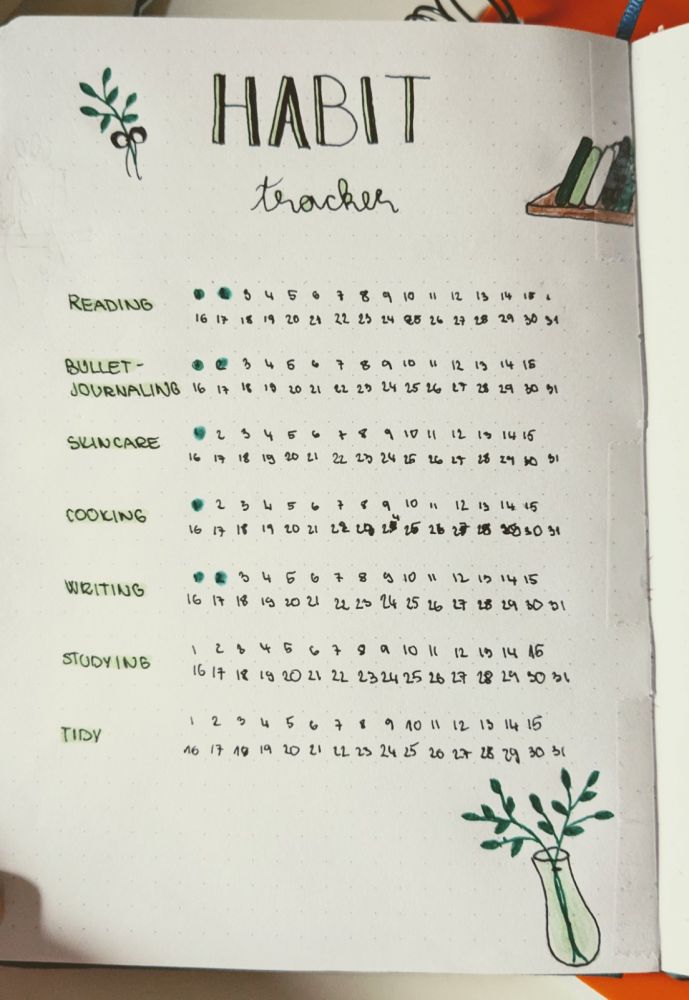 HABIT
tracker
READING 1 2 3 4 5 6 7 8 9 10 11 12 13 14 15
16 17 18 19 20 21 22 23 24 25 26 27 28 29 30 31
BULLET- 1 2 3 4 5 6 7 8 9 10 11 12 13 14 15
JOURNALING 16 17 18 19 20 21 22 23 24 25 26 27 28 29 30 31
SKINCARE 1 2 3 4 5 6 7 8 9 10 11 12 13 14 15
16 17 18 19 20 21 22 23 24 25 26 27 28 29 30 31
COOKING 1 2 3 4 5 6 7 8 9 10 11 12 13 14 15
16 17 18 19 20 21 22 23 24 25 26 27 28 29 30 31
WRITING 1 2 3 4 5 6 7 8 9 10 11 12 13 14 15
16 17 18 19 20 21 22 23 24 25 26 27 28 29 30 31
STUDYING 1 2 3 4 5 6 7 8 9 10 11 12 13 14 15
16 17 18 19 20 21 22 23 24 25 26 27 28 29 30 31
TIDY 1 2 3 4 5 6 7 8 9 10 11 12 13 14 15
16 17 18 19 20 21 22 23 24 25 26 27 28 29 30 31